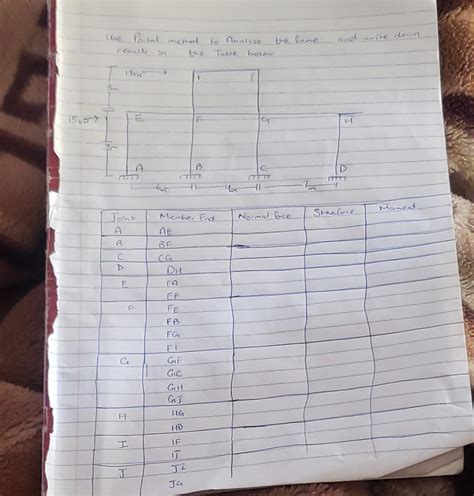 Use Portal method to Analyse the frame and write down
results in the Table below
18kN
I J
15kN
E F G H
A B C D
4m 4m
Joint Member End Normal force Shearforce Moment
A AE
B BF
C CG
D DH
E EA
EF
F FE
FB
FG
FI
G GF
GC
GH
GJ
H HG
HD
I IF
IJ
J JI
JG